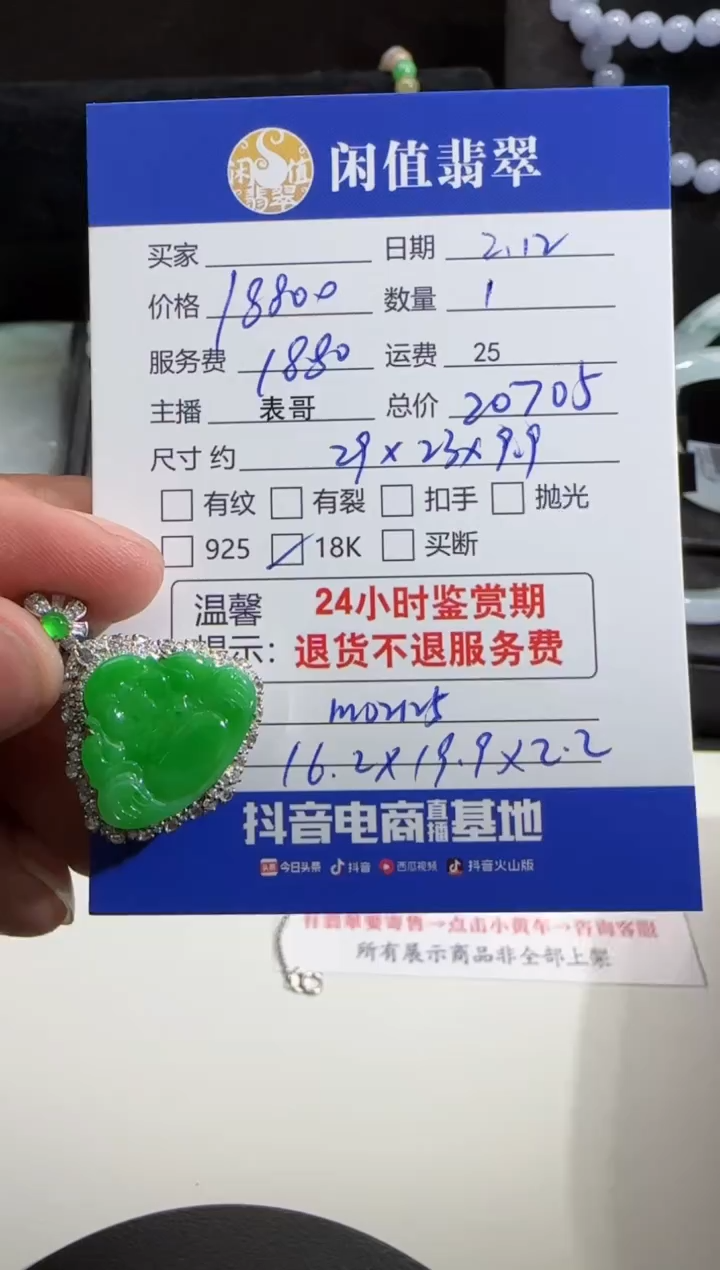 闲值翡翠 闲值翡翠
买家 日期 2.12
价格 18800 数量 1
服务费 1880 运费 25
主播 表哥 总价 20705
尺寸 约 29×23×9.9
有纹 有裂 扣手 抛光
925 18K 买断
温馨 24小时鉴赏期
提示: 退货不退服务费
m02125
16.2×19.9×2.2
抖音电商直播基地
头条 今日头条 抖音 西瓜视频 抖音火山版
有翡翠要寄售→点击小黄车→咨询客服
所有展示商品非全部上架